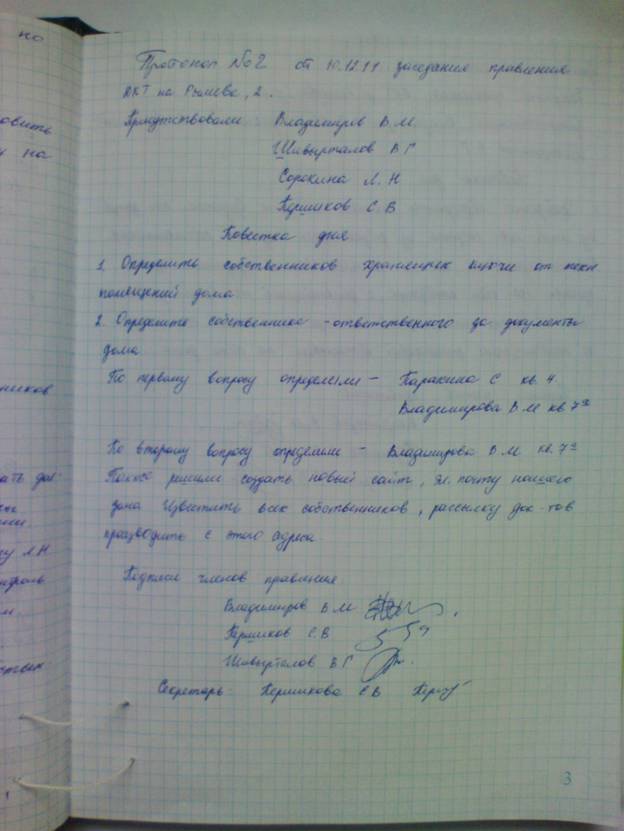 но
овить
на
ников
Л.Н
Протокол №2 от 10.12.11 заседания правления
на Рылеева, 2.
Присутствовали: Владимиров В.М.
Шивырталов В Г
Сорокина Л. Н
Першиков С В
Повестка дня
1. Определить собственников хранящих ключи от техн
помещений дома
2. Определить собственника - ответственного за документы
дома
По первому вопросу определили - Каракина С кв. 4.
Владимирова В М кв 7а
По второму вопросу определили - Владимирова В. М кв. 7а
Также решили создать новый сайт, эл. почту нашего
дома Известить всех собственников, рассылку док-тов
производить с этого адреса.
Подписи членов правления
Владимиров В.М
Першиков С.В
Шивырталов В Г
Секретарь: Першикова С В
3